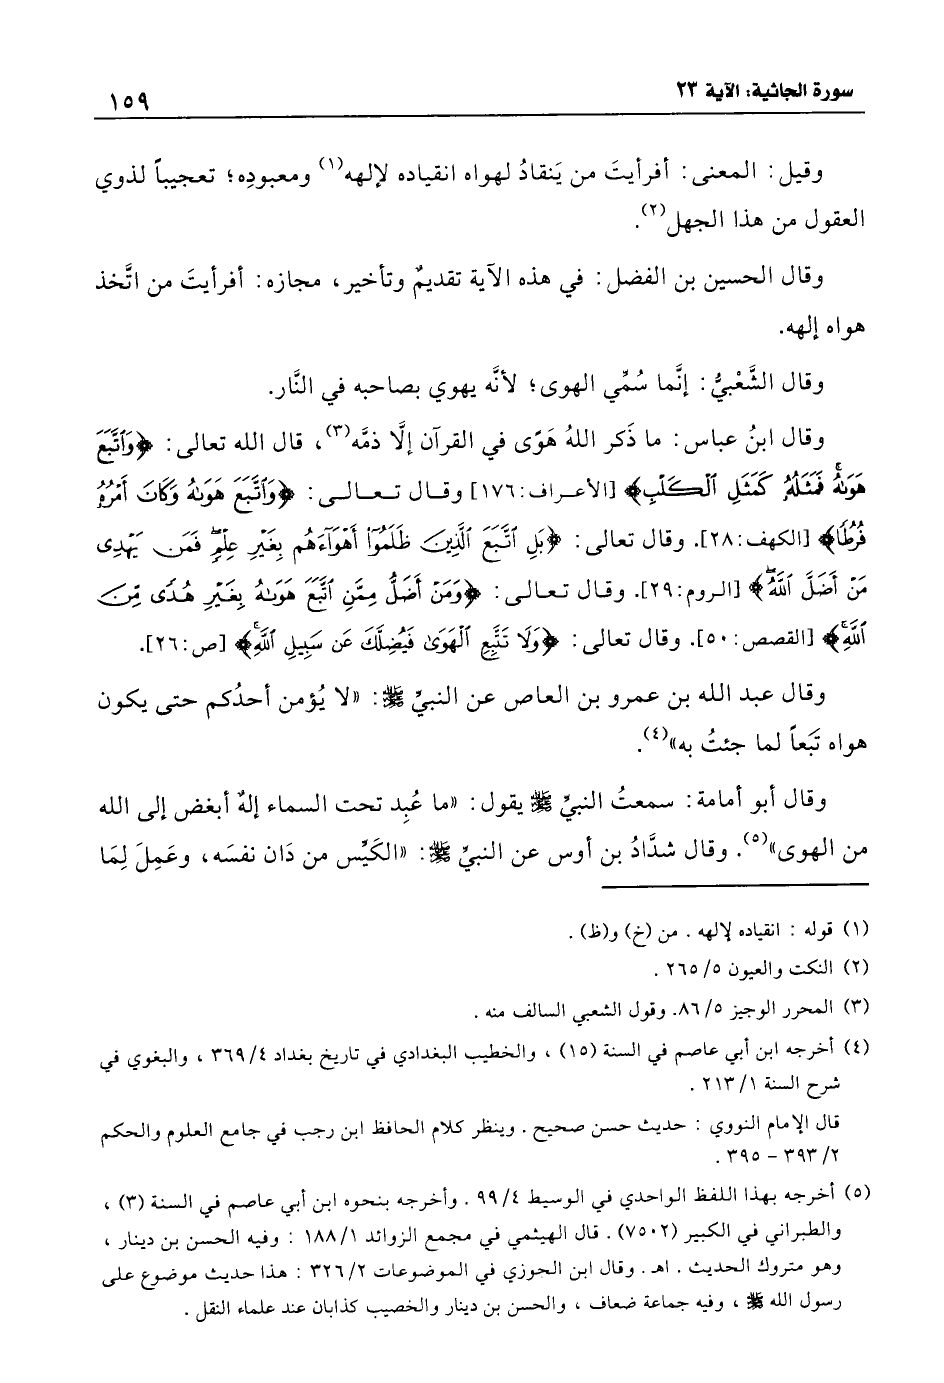 سورة الجاثية: الآية ٢٣
١٥٩
وقيل: المعنى: أفرأيتَ من يَنقادُ لهواه انقياده لإلهه(١) ومعبودِه؛ تعجيباً لذوي
العقول من هذا الجهل(٢).
وقال الحسين بن الفضل: في هذه الآية تقديمٌ وتأخير، مجازه: أفرأيتَ من اتَّخذ
هواه إلهه.
وقال الشَّعْبيُّ: إنَّما سُمِّي الهوى؛ لأنَّه يهوي بصاحبه في النَّار.
وقال ابنُ عباس: ما ذَكر اللهُ هَوًى في القرآن إلَّا ذمَّه(٣)، قال الله تعالى: ﴿وَٱتَّبَعَ
هَوَىٰهُۚ فَمَثَلُهُۥ كَمَثَلِ ٱلۡكَلۡبِ﴾ [الأعراف:١٧٦] وقال تعالى: ﴿وَٱتَّبَعَ هَوَىٰهُ وَكَانَ أَمۡرُهُۥ
فُرُطٗا﴾ [الكهف:٢٨]. وقال تعالى: ﴿بَلِ ٱتَّبَعَ ٱلَّذِينَ ظَلَمُوٓاْ أَهۡوَآءَهُم بِغَيۡرِ عِلۡمٖۖ فَمَن يَهۡدِي
مَنۡ أَضَلَّ ٱللَّهُۖ﴾ [الروم:٢٩]. وقال تعالى: ﴿وَمَنۡ أَضَلُّ مِمَّنِ ٱتَّبَعَ هَوَىٰهُ بِغَيۡرِ هُدٗى مِّنَ
ٱللَّهِۚ﴾ [القصص:٥٠]. وقال تعالى: ﴿وَلَا تَتَّبِعِ ٱلۡهَوَىٰ فَيُضِلَّكَ عَن سَبِيلِ ٱللَّهِۚ﴾ [ص:٢٦].
وقال عبد الله بن عمرو بن العاص عن النبيِّ ﷺ: «لا يُؤمن أحدُكم حتى يكون
هواه تَبَعاً لما جئتُ به»(٤).
وقال أبو أمامة: سمعتُ النبيَّ ﷺ يقول: «ما عُبِد تحت السماء إلهٌ أبغض إلى الله
من الهوى»(٥). وقال شدَّادُ بن أوس عن النبيِّ ﷺ: «الكَيِّس من دَان نفسَه، وعَمِلَ لِمَا
(١) قوله : انقياده لإلهه . من (خ) و(ظ) .
(٢) النكت والعيون ٥/ ٢٦٥ .
(٣) المحرر الوجيز ٥/ ٨٦. وقول الشعبي السالف منه .
(٤) أخرجه ابن أبي عاصم في السنة (١٥) ، والخطيب البغدادي في تاريخ بغداد ٤/ ٣٦٩ ، والبغوي في
شرح السنة ١/ ٢١٣ .
قال الإمام النووي : حديث حسن صحيح . وينظر كلام الحافظ ابن رجب في جامع العلوم والحكم
٢/ ٣٩٣ – ٣٩٥ .
(٥) أخرجه بهذا اللفظ الواحدي في الوسيط ٤/ ٩٩ . وأخرجه بنحوه ابن أبي عاصم في السنة (٣) ،
والطبراني في الكبير (٧٥٠٢) . قال الهيثمي في مجمع الزوائد ١/ ١٨٨ : وفيه الحسن بن دينار ،
وهو متروك الحديث . اهـ . وقال ابن الجوزي في الموضوعات ٢/ ٣٢٦ : هذا حديث موضوع على
رسول الله ﷺ ، وفيه جماعة ضعاف ، والحسن بن دينار والخصيب كذابان عند علماء النقل .